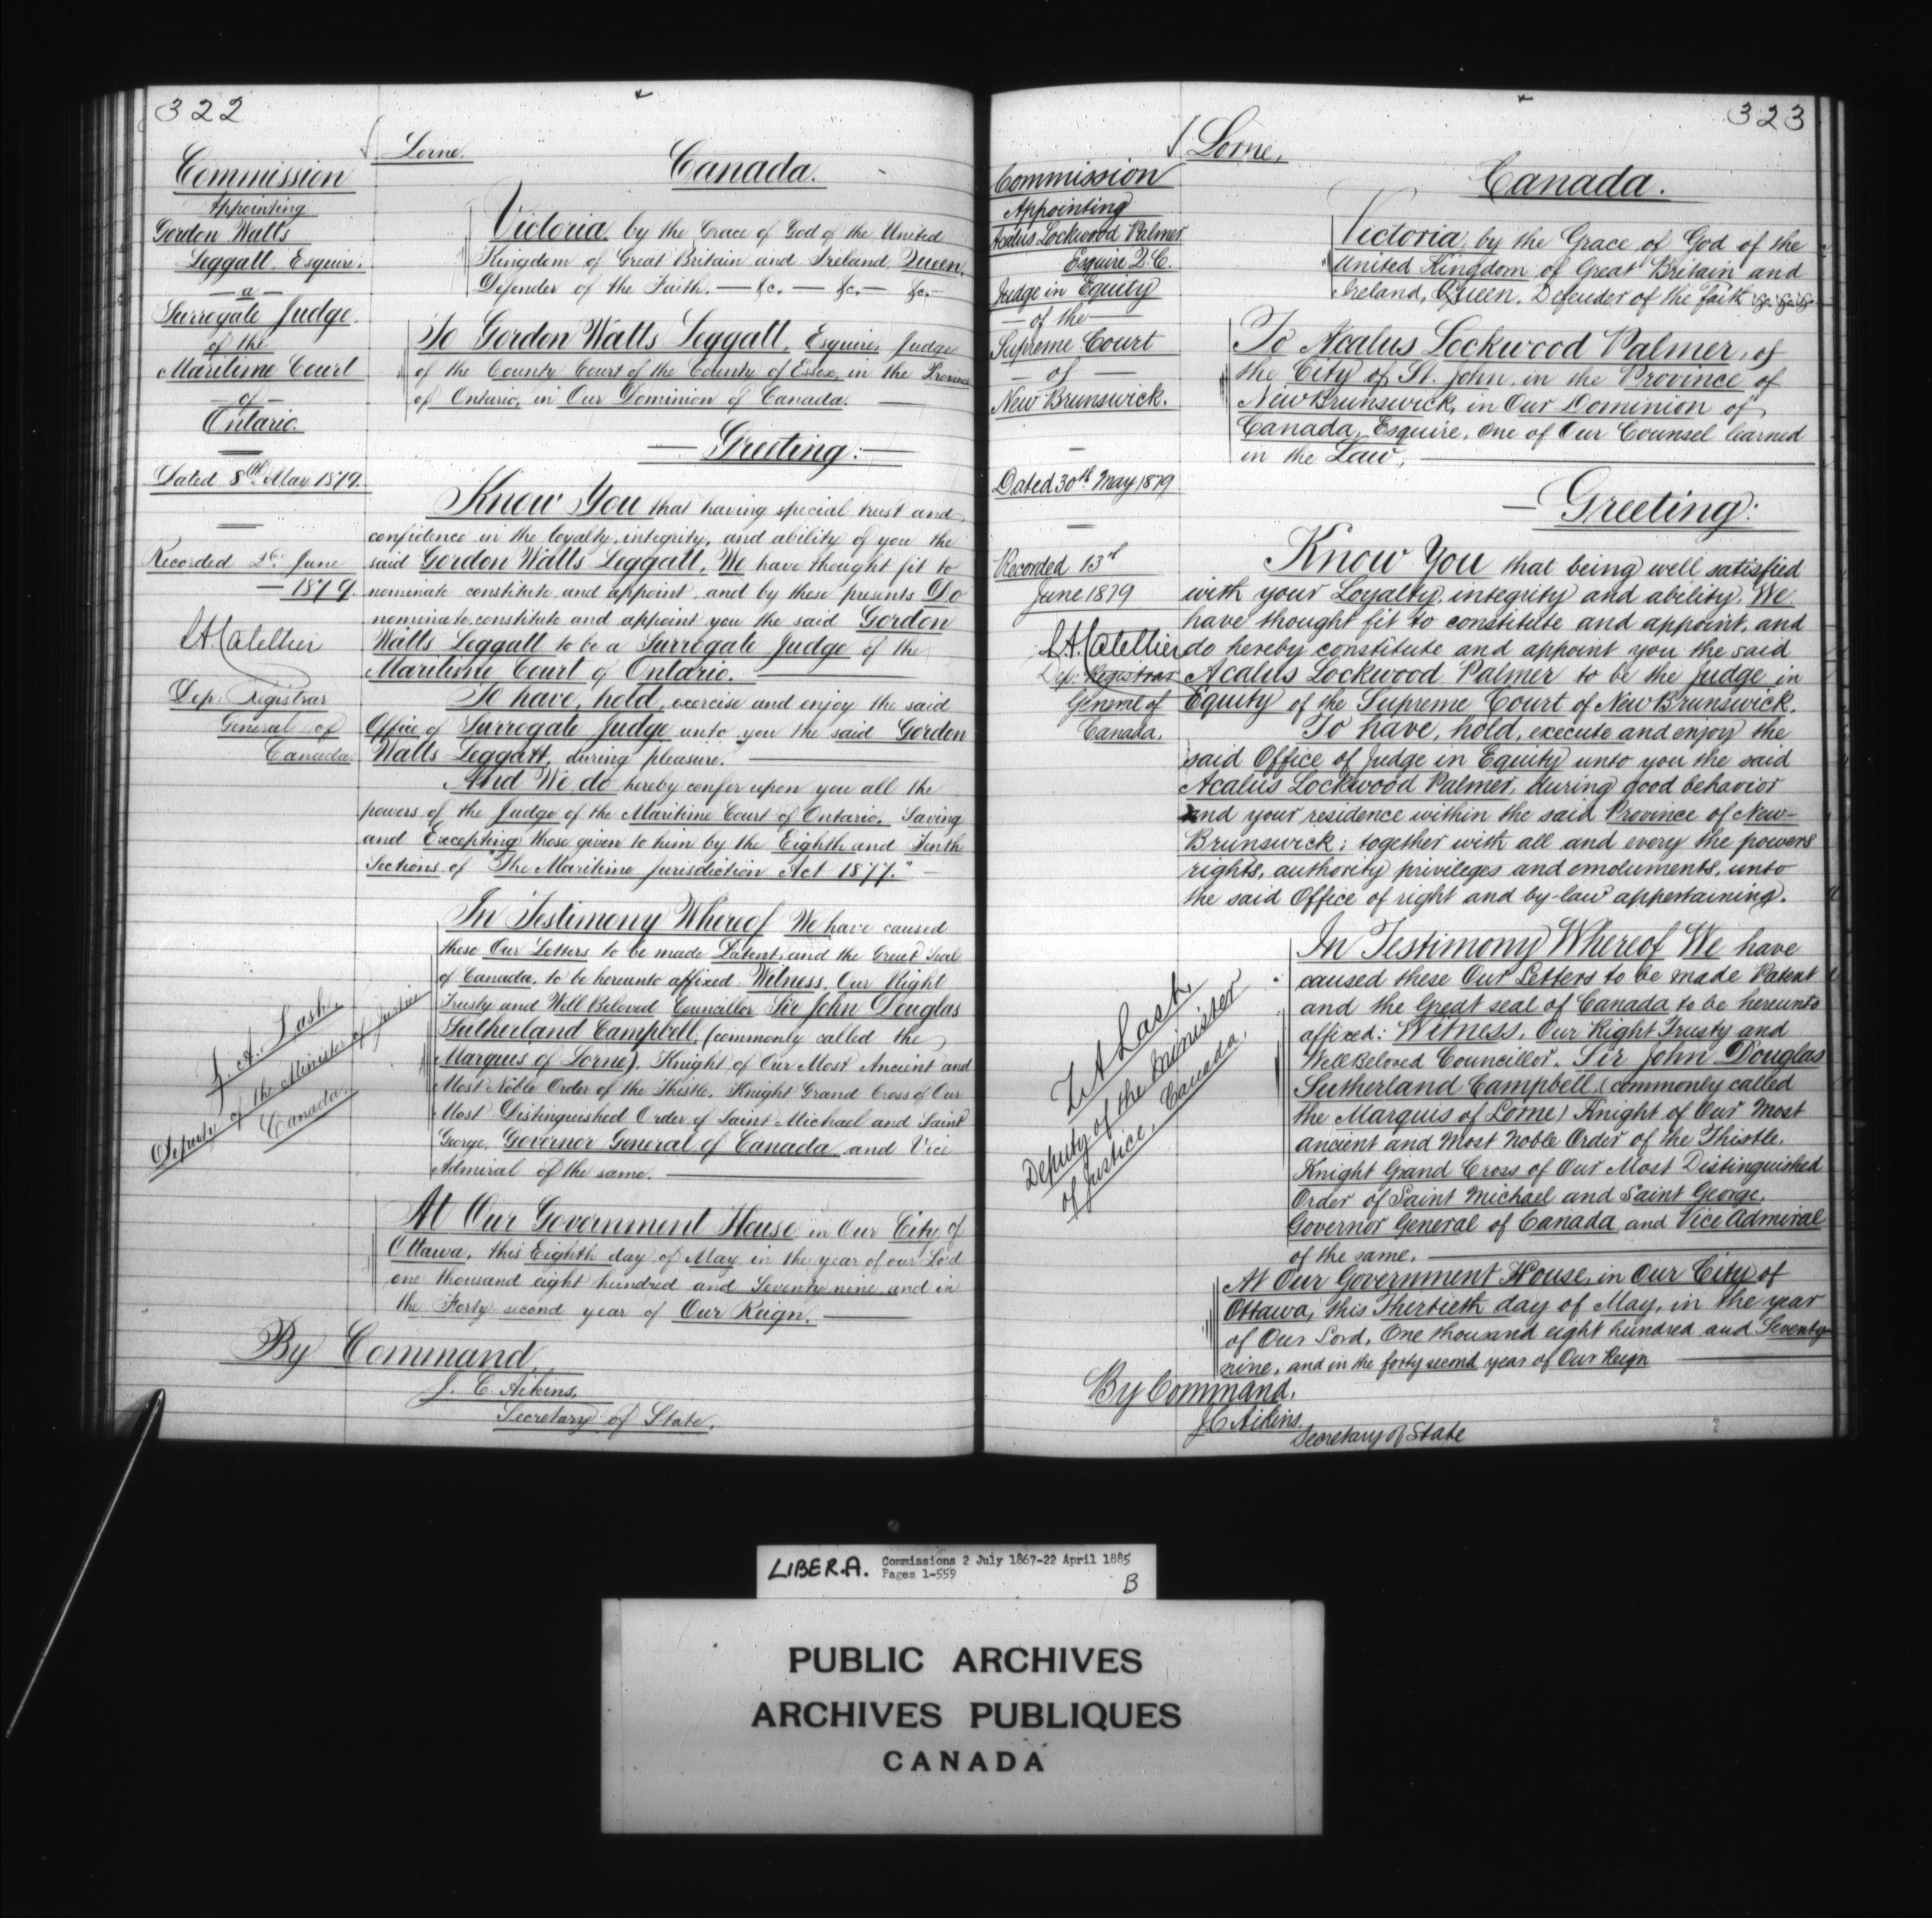 322
Commission
Appointing
Gordon Watts
Leggatt, Esquire,
a
Surrogate Judge
of the
Maritime Court
of
Ontario.
Dated 8th May 1879.
Recorded June
1879.
Dep. Registrar
General of
Canada.
Z. A. Lash
Deputy of the Minister of Justice
Canada.
Lorne.
Canada.
Victoria, by the Grace of God of the United
Kingdom of Great Britain and Ireland, Queen,
Defender of the Faith. — &c. — &c. — &c. —
To Gordon Watts Leggatt, Esquire, Judge
of the County Court of the County of Essex, in the Province
of Ontario, in Our Dominion of Canada. —
— Greeting: —
Know You that having special trust and
confidence in the loyalty, integrity, and ability of you the
said Gordon Watts Leggatt, We have thought fit to
nominate constitute and appoint, and by these presents Do
nominate, constitute and appoint you the said Gordon
Watts Leggatt to be a Surrogate Judge of the
Maritime Court of Ontario. —
To have, hold, exercise and enjoy the said
Office of Surrogate Judge unto you the said Gordon
Watts Leggatt, during pleasure. —
And We do hereby confer upon you all the
powers of the Judge of the Maritime Court of Ontario, Saving
and Excepting those given to him by the Eighth and Tenth
Sections of "The Maritime Jurisdiction Act 1877." —
In Testimony Whereof We have caused
these Our Letters to be made Patent, and the Great Seal
of Canada, to be hereunto affixed. Witness, Our Right
Trusty and Well Beloved Councillor Sir John Douglas
Sutherland Campbell, (commonly called the
Marquis of Lorne), Knight of Our Most Ancient and
Most Noble Order of the Thistle, Knight Grand Cross of Our
Most Distinguished Order of Saint Michael and Saint
George, Governor General of Canada and Vice
Admiral of the same. —
At Our Government House, in Our City of
Ottawa, this Eighth day of May in the year of our Lord
one thousand eight hundred and Seventy nine and in
the Forty-second year of Our Reign. —
By Command,
J. C. Aikins,
Secretary of State.
323
Commission
Appointing
Acalus Lockwood Palmer
Esquire Q.C.
Judge in Equity
— of the —
Supreme Court
— of —
New Brunswick.
Dated 30th May 1879
Recorded 13th
June 1879
Dep. Registrar
General of
Canada.
Z A Lash,
Deputy of the Minister
of Justice, Canada.
Lorne,
Canada.
Victoria, by the Grace of God of the
United Kingdom of Great Britain and
Ireland, Queen, Defender of the faith &c &c &c
To Acalus Lockwood Palmer, of
the City of St. John, in the Province of
New Brunswick, in Our Dominion of
Canada, Esquire, One of Our Counsel learned
in the Law, —
— Greeting:
Know You that being well satisfied
with your Loyalty, integrity and ability, We
have thought fit to constitute and appoint, and
do hereby constitute and appoint you the said
Acalus Lockwood Palmer to be the Judge in
Equity of the Supreme Court of New Brunswick.
To have, hold, execute and enjoy the
said Office of Judge in Equity unto you the said
Acalus Lockwood Palmer, during good behavior
and your residence within the said Province of New-
Brunswick; together with all and every the powers
rights, authority privileges and emoluments, unto
the said Office of right and by-law appertaining.
In Testimony Whereof We have
caused these Our Letters to be made Patent
and the Great seal of Canada to be hereunto
affixed: Witness, Our Right Trusty and
Well Beloved Councillor. Sir John Douglas
Sutherland Campbell, (commonly called
the Marquis of Lorne) Knight of Our Most
ancient and Most Noble Order of the Thistle,
Knight Grand Cross of Our Most Distinguished
Order of Saint Michael and Saint George,
Governor General of Canada and Vice Admiral
of the same. —
At Our Government House, in Our City of
Ottawa, this Thirtieth day of May, in the year
of Our Lord, One thousand eight hundred and Seventy
nine, and in the forty second year of Our Reign
By Command,
J C Aikins,
Secretary of State
LIBER.A. Commissions 2 July 1867-22 April 1885
Pages 1-559
B
PUBLIC ARCHIVES
ARCHIVES PUBLIQUES
CANADA